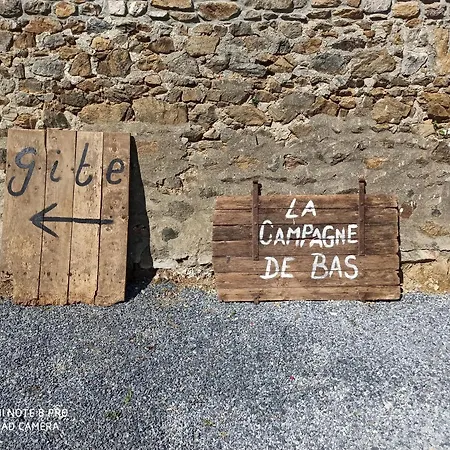 gite
LA
CAMPAGNE
DE BAS
NOTE 8 PRO
AD CAMERA